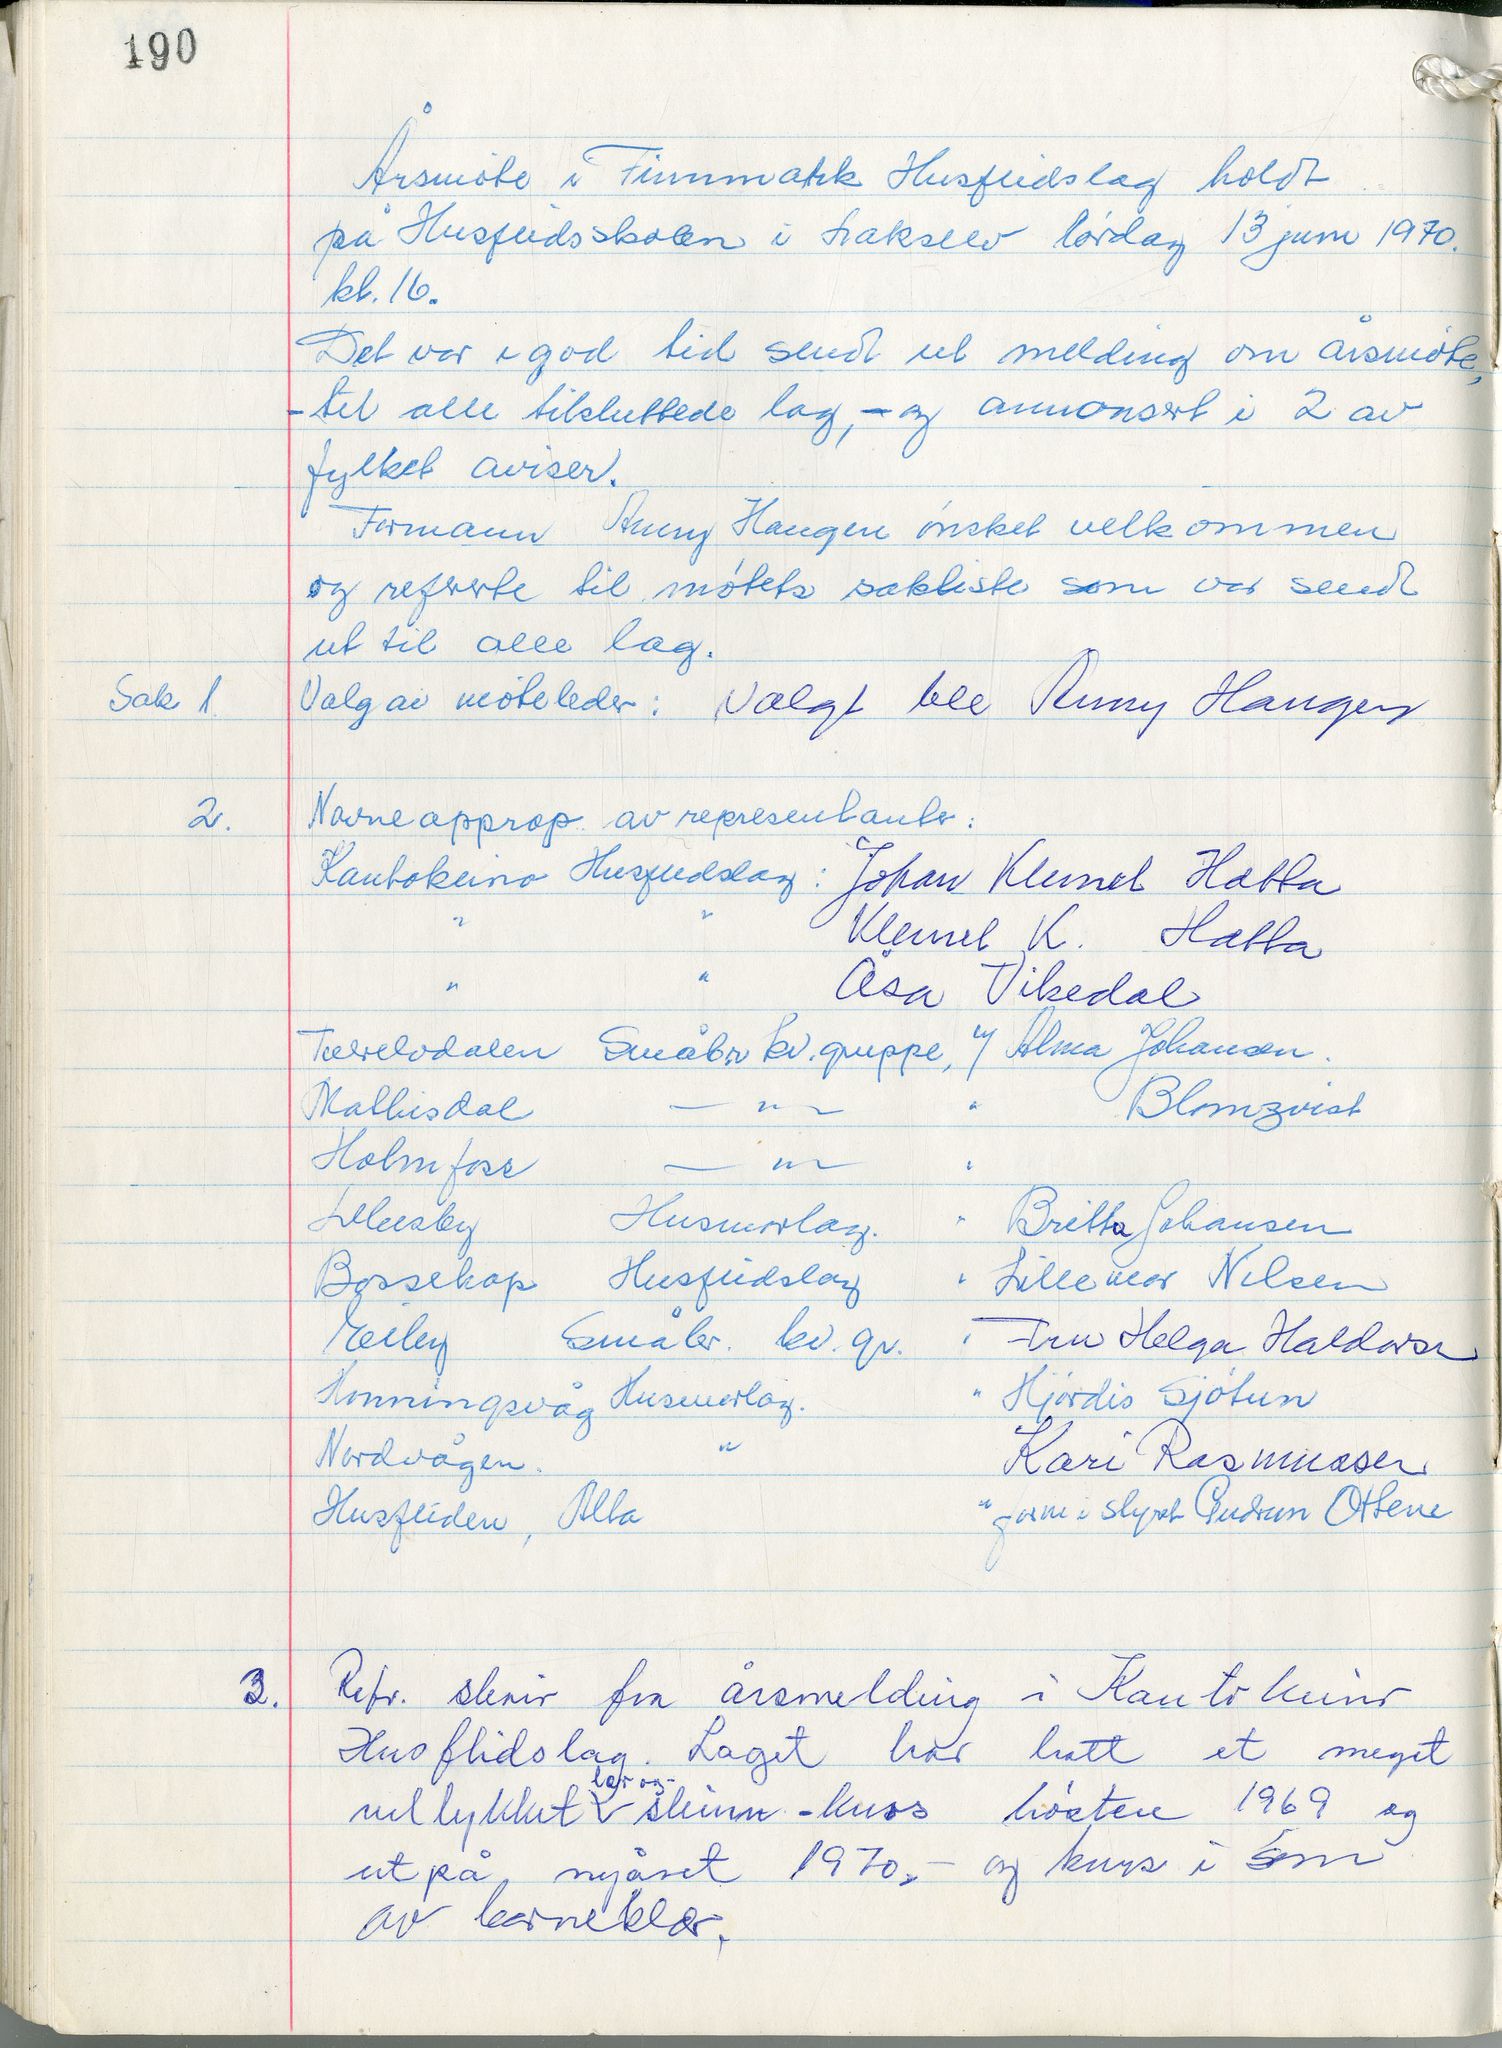 190
Årsmøte i Finnmark Husflidslag holdt
på Husflidsskolen i Lakselv lørdag 13 juni 1970.
kl. 16.
Det var i god tid sendt ut melding om årsmøte,
- til alle tilsluttede lag, - og annonsert i 2 av
fylket aviser.
Formann Anny Haugen ønsket velkommen
og refererte til møtets sakliste som var sendt
ut til alle lag.
Sak 1. Valg av møteleder: Valgt ble Anny Haugen
2. Navneopprop av representanter:
Kautokeino Husflidslag: Johan Klemet Hætta
" " Klemet K. Hætta
" " Åsa Vikedal
Tverrelvdalen Småbr. kv. gruppe, v/ Alma Johansen.
Mathisdal — " — " Blomqvist
Holmfoss — " — "
Lebesby Husmorlag. " Britta Johansen
Bossekop Husflidslag " Lillemor Nilsen
Småbr. kv. gr. " Fru Helga Haldorsen
Honningsvåg Husmorlag. " Hjørdis Sjøtun
Nordvågen. " Kari Rasmussen
Husfliden, Alta " form i styret Gudrun Ottene
3. Refr. skriv fra årsmelding i Kautokeino
Husflidslag. Laget har hatt et meget
vellykket lær og- skinn-kurs høsten 1969 og
utpå nyåret 1970,- og kurs i søm
av barneklær.